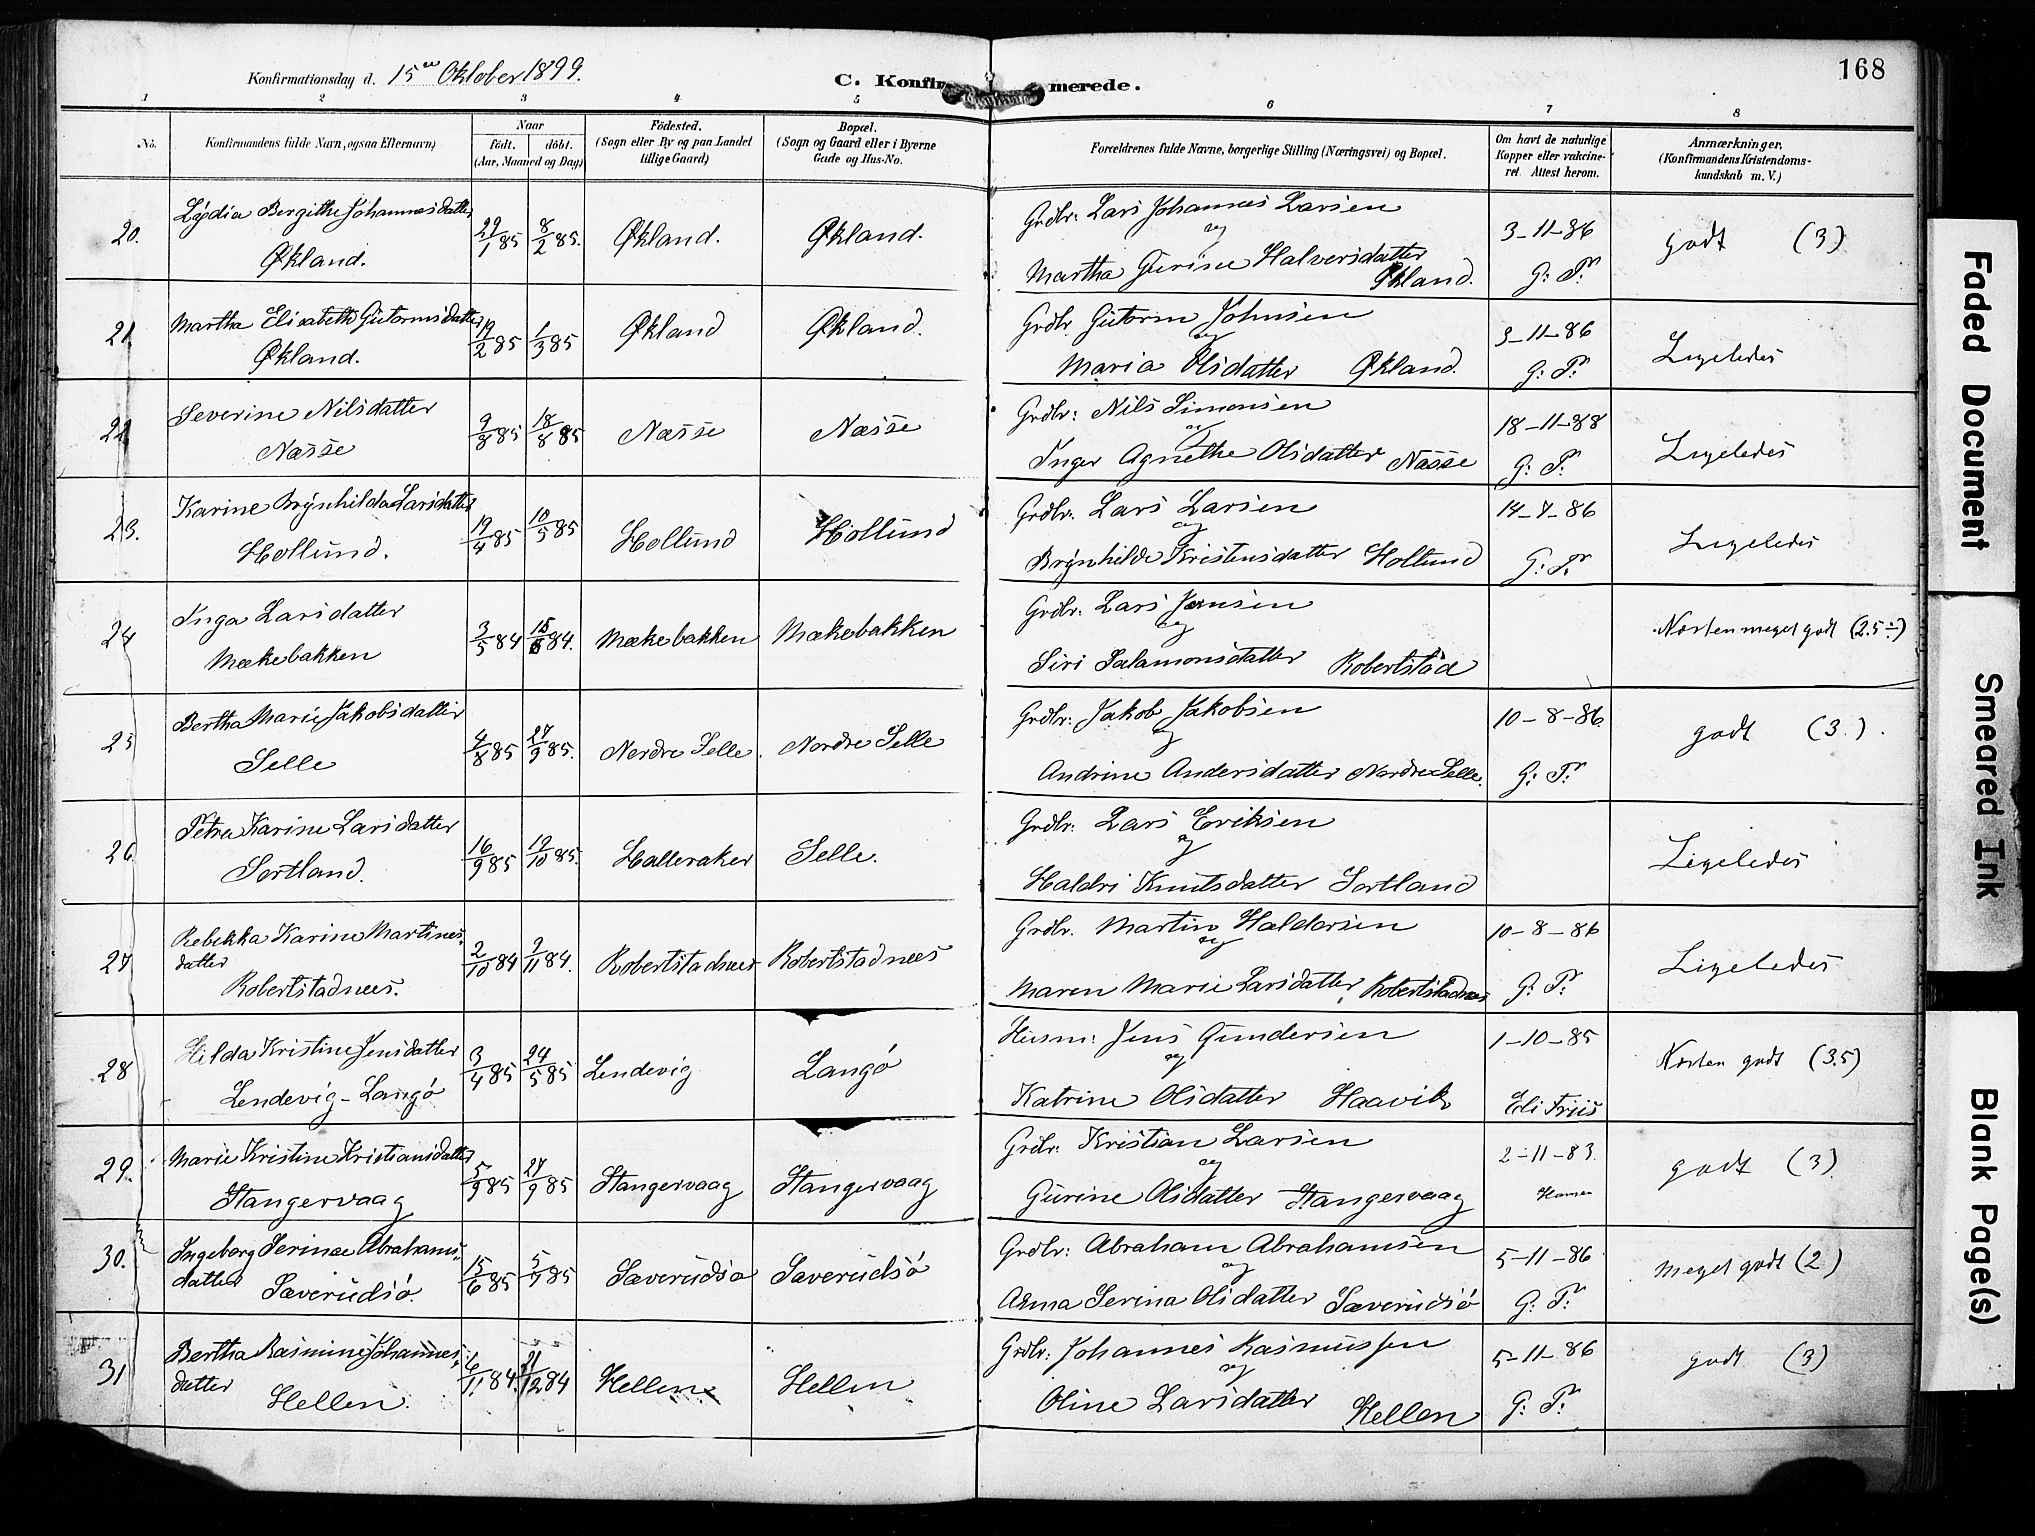 Konfirmationsdag d. 15de Oktober 1899.
C. Konfir merede.
168
1 2 3 4 5 6 7 8
No.
Konfirmandens fulde Navn, ogsaa Efternavn)
Naar
födt. döbt.
(Aar, Maaned og Dag)
Födested.
(Sogn eller By og paa Landet
tillige Gaard)
Bopæl.
(Sogn og Gaard eller i Byerne
Gade og Hus-No.
Forældrenes fulde Navne, borgerlige Stilling (Næringsvei) og Bopæl.
Om havt de naturlige
Kopper eller vakcine-
ret. Attest herom.
Anmærkninger.
(Konfirmandens Kristendoms-
kundskab m. V.)
20. Lydia Bergithe Johannesdatter Økland. 29/1 85 8/2 85. Økland. Økland. Grdbr: Lars Johannes Larsen og Martha Gurine Halversdatter Økland. 3-11-86 G: T: godt (3)
21 Martha Elisabeth Gutormsdatter Økland. 19/2 85 1/3 85 Økland Økland. Grdbr. Gutorm Johnsen og Maria Olsdatter Økland. 3-11-86 G: T: Ligeledes
22 Severine Nilsdatter Næsse 9/8 85 18/8 85 Næsse Næsse Grdbr: Nils Simonsen og Inger Agnethe Olsdatter Næsse 18-11-88 G: T: Ligeledes
23. Karine Brynhilda Larsdatter Hollund. 19/4 85 10/5 85 Hollund Hollund Grdbr. Lars Larsen og Brynhilde Kristensdatter Hollund 14-7-86 G: T: Ligeledes
24 Inga Larsdatter Mækebakken 3/5 84 15/6 84. Mækebakken Mækebakken Grdbr: Lars Jensen og Siri Salamonsdatter Robertstad Næsten meget godt (2.5)
25 Bertha Marie Jakobsdatter Selle 4/8 85 27/9 85. Nordre Selle. Nordre Selle Grdbr: Jakob Jakobsen og Andrine Andersdatter Nordre Selle. 10-8-86 G: T: godt (3.).
26 Petra Karine Larsdatter Sortland. 16/9 85 19/10 85. Halleraker Selle. Grdbr: Lars Eriksen og Haldri Knutsdatter Sortland Ligeledes
27 Rebekka Karine Martines-
datter Robertstadnees. 2/10 84 9/11 84. Robertstadnees Robertstadnees Grdbr. Martin Haldorsen og Maren Marie Larsdatter, Robertstadnes 10-8-86 G: T: Ligeledes
28 Hilda Kristine Jensdatter Lendevig-Langö 3/4 85 24/5 85 Lendevig Langö Husm: Jens Gundersen og Katrine Olsdatter Haavik 1-10-85 Eli Friis Næsten godt (3.5)
29. Marie Kristine Kristiansdatter Stangervaag 5/9 85 27/9 85 Stangervaag Stangervaag Grdbr: Kristian Larsen og Gurine Olsdatter Stangervaag 2-11-83. Hansen godt (3)
30. Ingeborg Serinae Abrahams-
datter Sæverudsö. 15/6 85 5/7 85 Sæverudsö Sæverudsö Grdbr: Abraham Abrahamsen og Anna Serina Olsdatter Sæverudsö 5-11-86 G: T: meget godt (2)
31 Bertha Rasmine Johannes-
datter Hellen. 6/11 84. 21/12 84 Hellen Hellen Grdbr: Johannes Rasmussen og Oline Larsdatter Hellen 5-11-86 G: T: godt (3)
Faded Document
Smeared Ink
Blank Page(s)